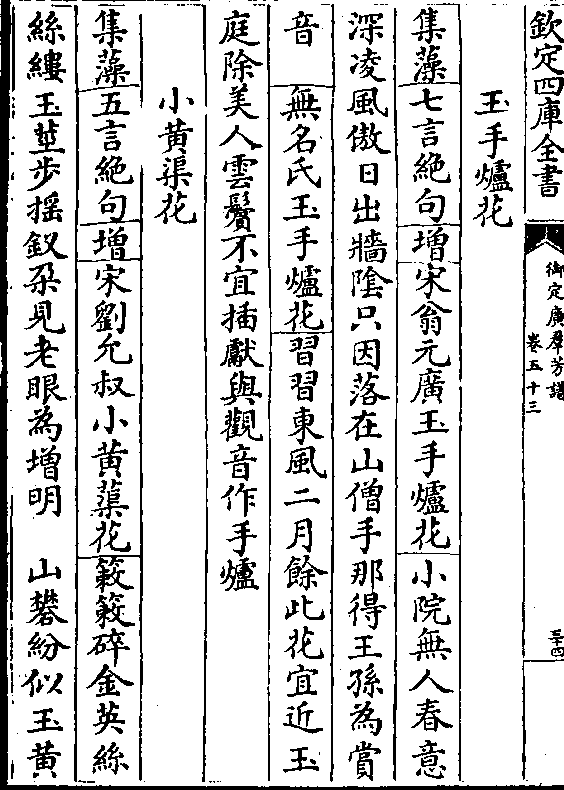 欽定四庫全書
御定廣羣芳譜
卷五十三
三十四
玉手爐花
集藻七言絕句增宋翁元廣玉手爐花小院無人春意
深凌風傲日出牆陰只因落在山僧手那得王孫為賞
音　無名氏玉手爐花習習東風二月餘此花宜近玉
庭除美人雲鬢不宜插獻與觀音作手爐
小黄渠花
集藻五言絕句增宋劉允叔小黄蕖花簌簌碎金英絲
絲縷玉莖步搖釵朶見老眼為增明　山礬紛似玉黄